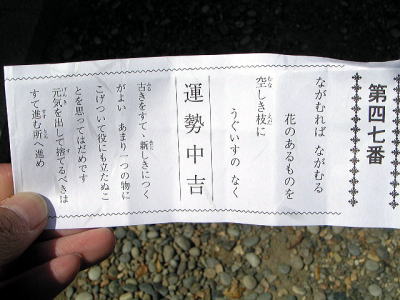 第四七番
ながむれば ながむる
花のあるものを
空しき枝に
うぐいすの なく
運勢中吉
古きをすて、新しきにつく
がよい あまり一つの物に
こげついて役にも立たぬこ
とを思ってはだめです
元気を出して捨てるべきは
すて進む所へ進め